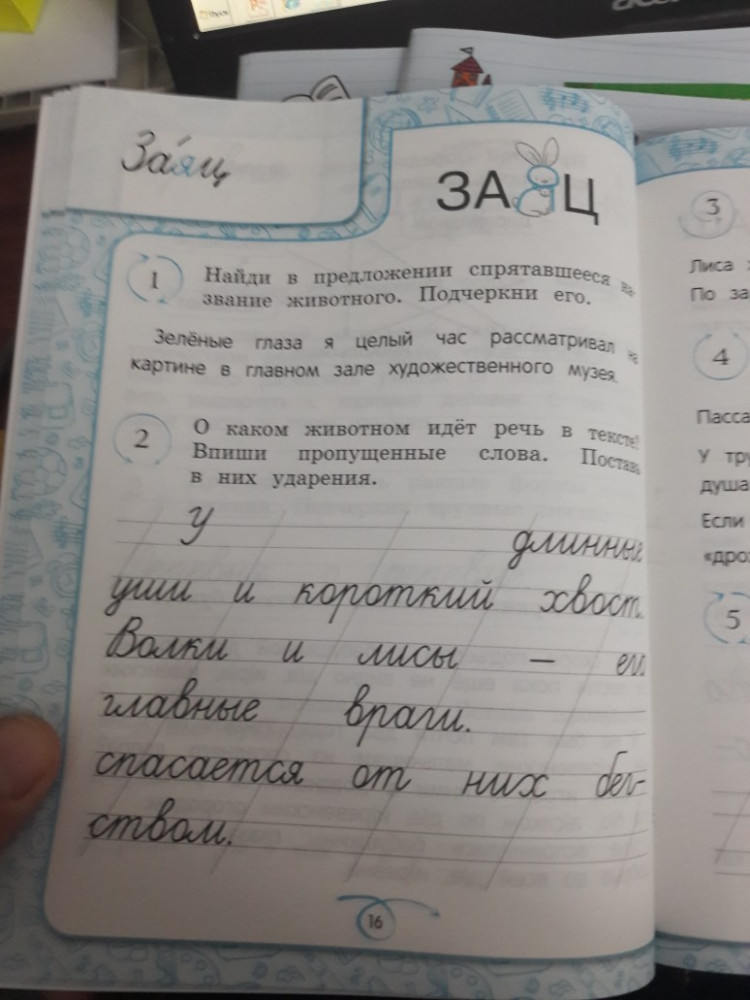 За́яц
ЗАЯЦ
1 Найди в предложении спрятавшееся на-
звание животного. Подчеркни его.
Зелёные глаза я целый час рассматривал на
картине в главном зале художественного музея.
2 О каком животном идёт речь в тексте?
Впиши пропущенные слова. Поставь
в них ударения.
У длинные
уши и короткий хвост.
Волки и лисы – его
главные враги.
спасается от них бег-
ством.
16
3
Лиса
По за
4
Пасса
У тру
душа
Если
«дро
5